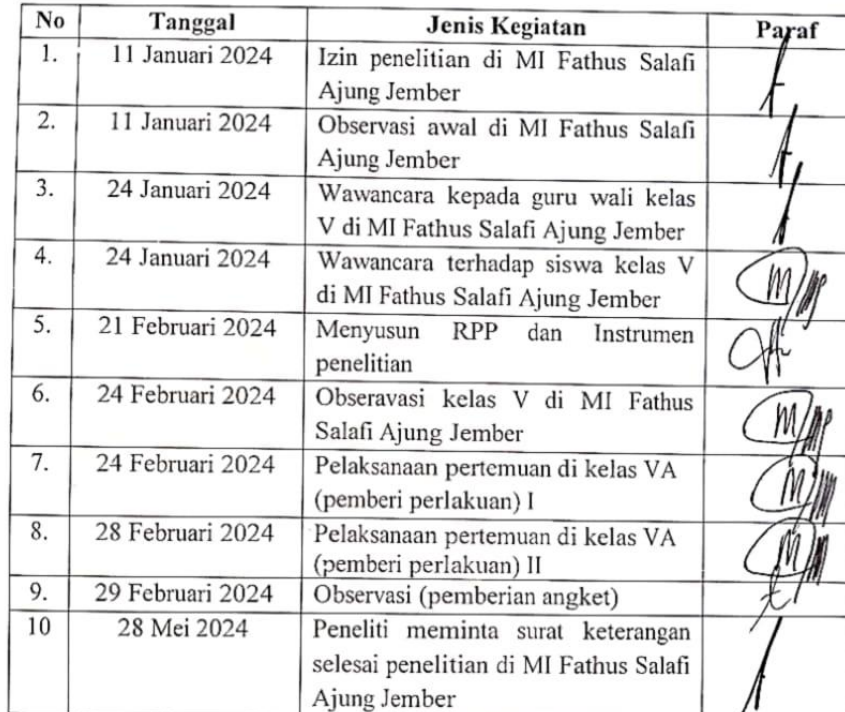 No Tanggal Jenis Kegiatan Paraf
1. 11 Januari 2024 Izin penelitian di MI Fathus Salafi
Ajung Jember
2. 11 Januari 2024 Observasi awal di MI Fathus Salafi
Ajung Jember
3. 24 Januari 2024 Wawancara kepada guru wali kelas
V di MI Fathus Salafi Ajung Jember
4. 24 Januari 2024 Wawancara terhadap siswa kelas V
di MI Fathus Salafi Ajung Jember
5. 21 Februari 2024 Menyusun RPP dan Instrumen
penelitian
6. 24 Februari 2024 Obseravasi kelas V di MI Fathus
Salafi Ajung Jember
7. 24 Februari 2024 Pelaksanaan pertemuan di kelas VA
(pemberi perlakuan) I
8. 28 Februari 2024 Pelaksanaan pertemuan di kelas VA
(pemberi perlakuan) II
9. 29 Februari 2024 Observasi (pemberian angket)
10 28 Mei 2024 Peneliti meminta surat keterangan
selesai penelitian di MI Fathus Salafi
Ajung Jember